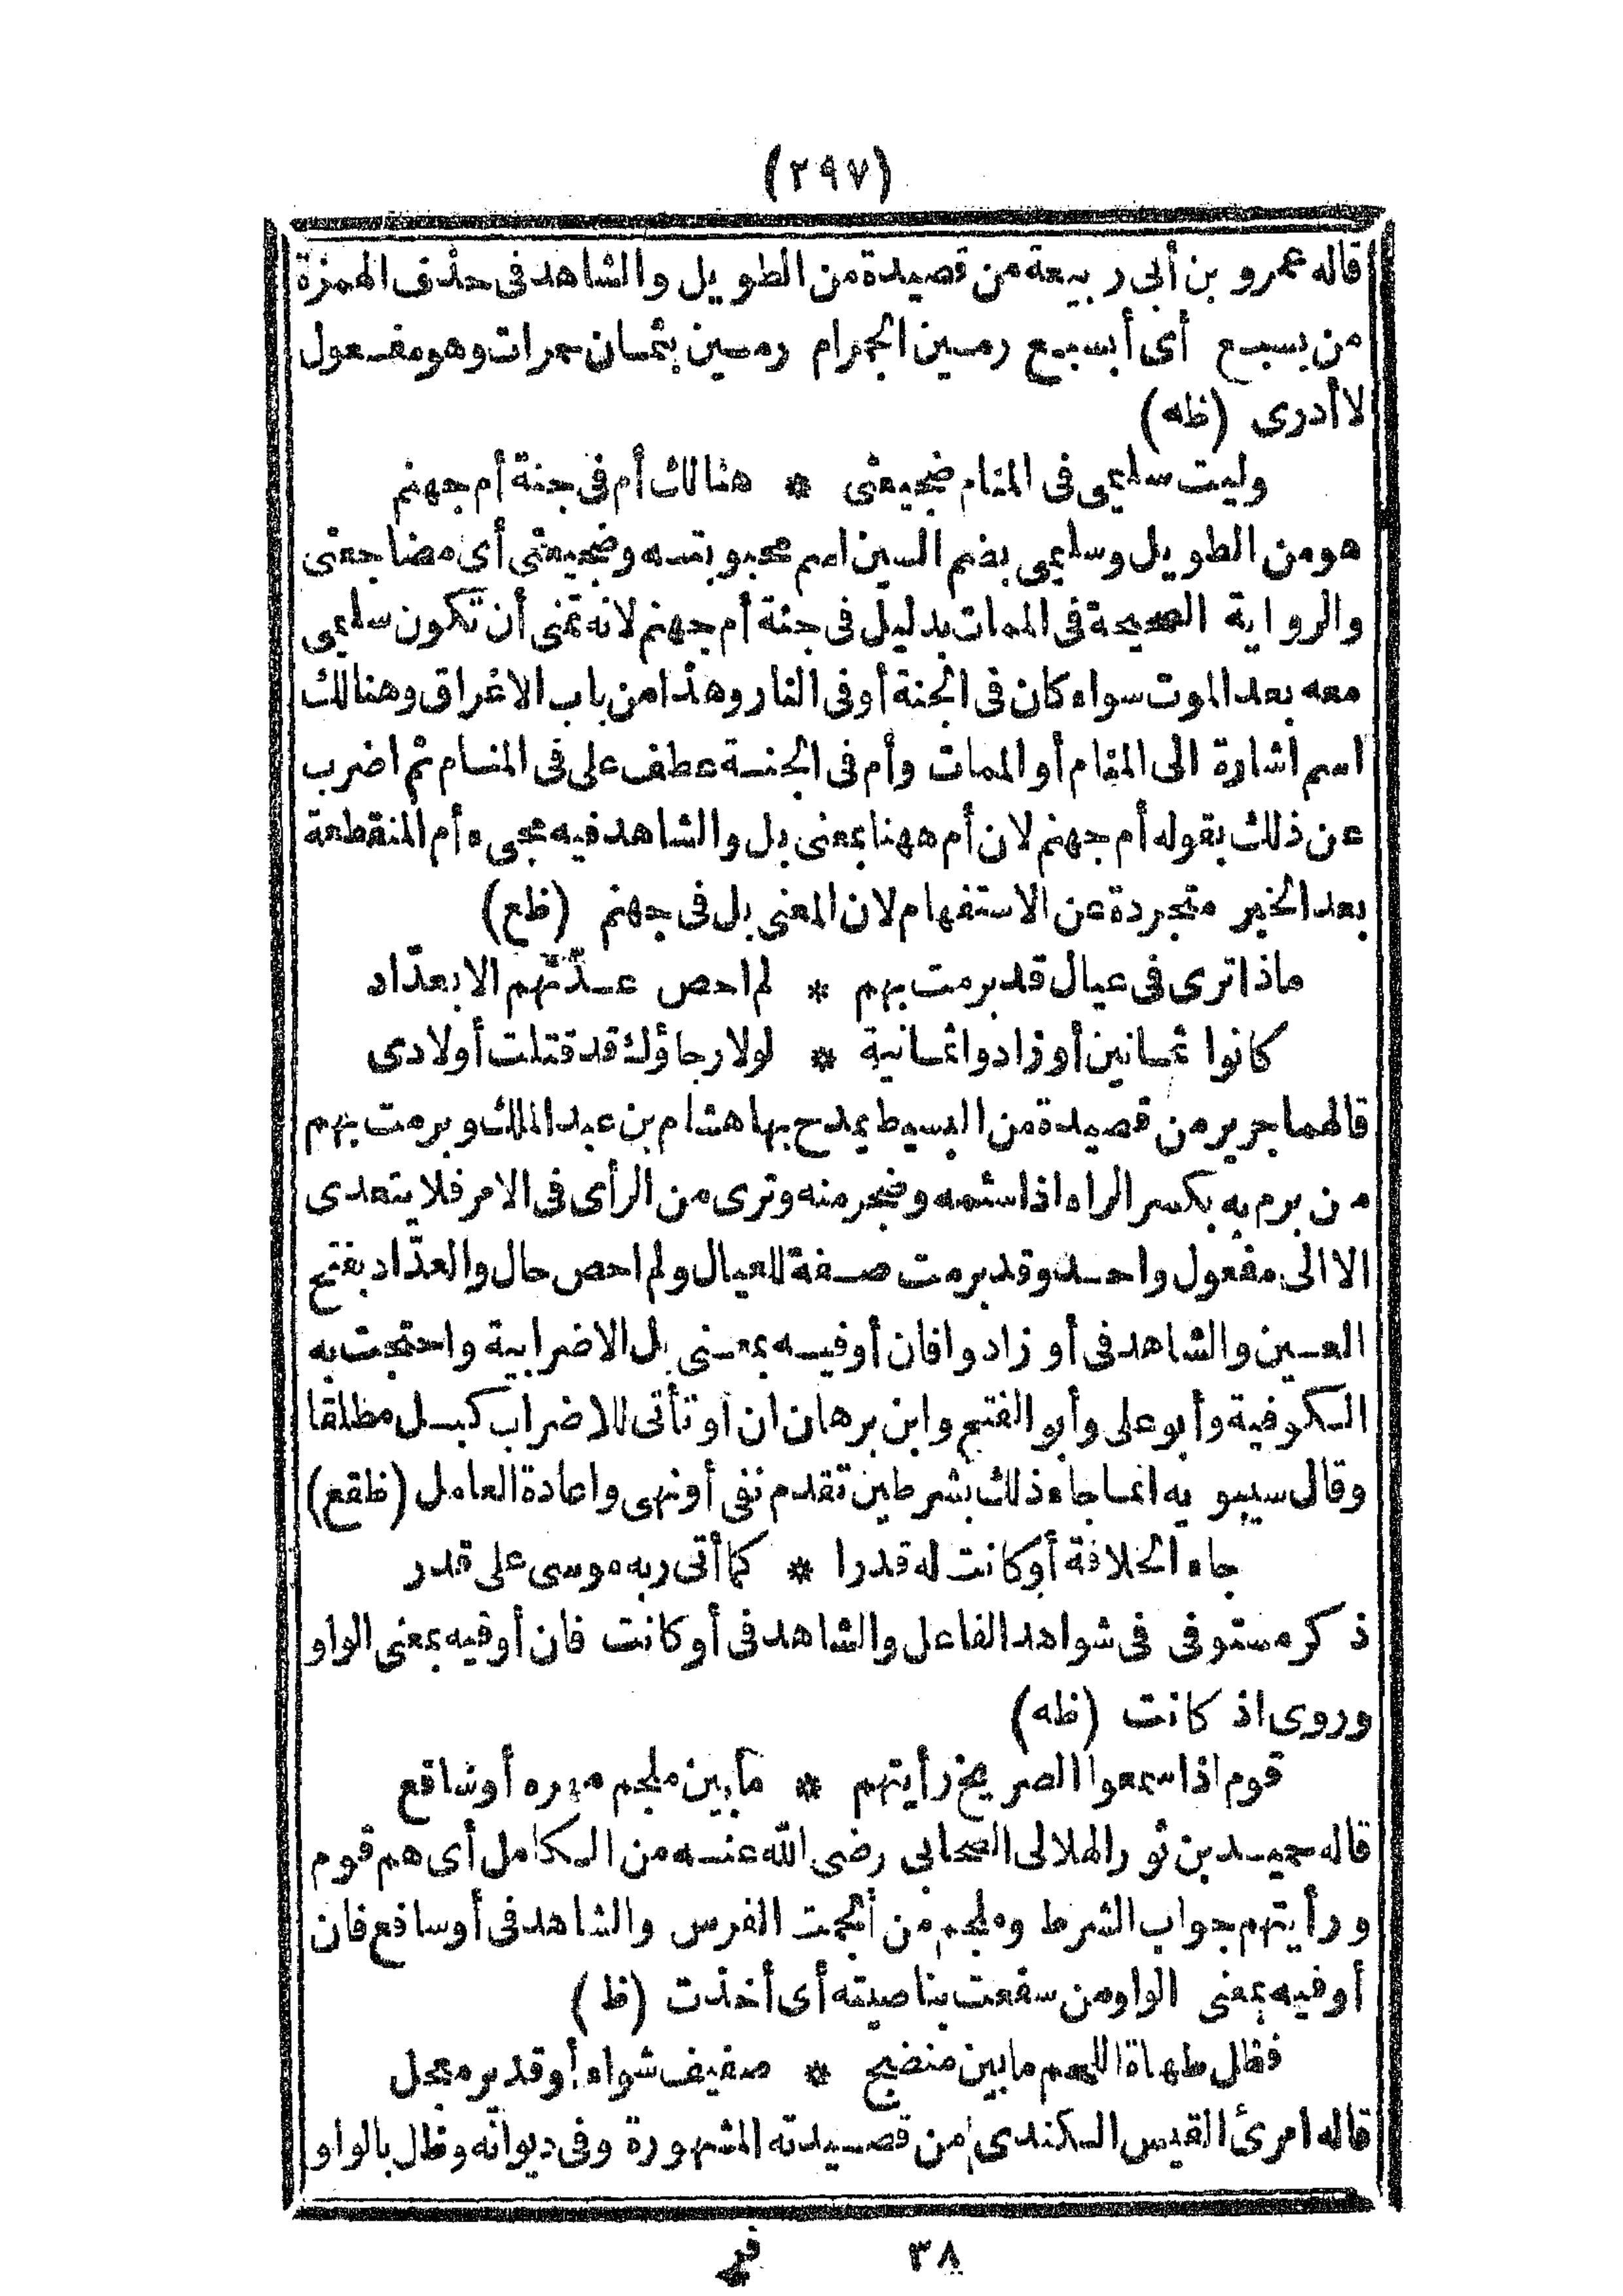 (٢٩٧)
قاله عمرو بن أبى ربيعة من قصيدة من الطويل والشاهد فى حذف الهمزة
من بسبع أى أبسبع رمين الجمر ام رمين بثمان جمرات وهو مفعول
لا أدرى (ظه)
وليت سليمى فى المنام ضجيعتى * هنالك أم فى جنة أم جهنم
هو من الطويل وسليمى بضم السين اسم محبوبته وضجيعتى أى مضاجعتى
والرواية الصحيحة فى الممات بدليل فى جنة أم جهنم لانه تمنى أن تكون سليمى
معه بعد الموت سواء كان فى الجنة أو فى النار وهذا من باب الاغراق وهنالك
اسم اشارة الى المنام أو الممات وأم فى الجنة عطف على فى المنام ثم اضرب
عن ذلك بقوله أم جهنم لان أم ههنا بمعنى بل والشاهد فيه مجىء أم المنقطعة
بعد الخبر متجردة عن الاستفهام لان المعنى بل فى جهنم (ظع)
ماذا ترى فى عيال قد برمت بهم * لم احص عدّتهم الا بعدّاد
كانوا ثمانين أو زادوا ثمانية * لولا رجاؤك قد قتلت أولادى
قالهما جرير من قصيدة من البسيط يمدح بها هشام بن عبد الملك وبرمت بهم
من برم به بكسر الراء اذا سئمه وضجر منه وترى من الرأى فى الامر فلا يتعدى
الا الى مفعول واحد وقد برمت صفة للعيال ولم احص حال والعدّاد بفتح
العين والشاهد فى أو زادوا فان أو فيه بمعنى بل الاضرابية واحتجت به
الكوفية وأبو على وأبو الفتح وابن برهان ان أو تأتى للاضراب كبل مطلقا
وقال سيبويه انما جاء ذلك بشرطين تقدم نفى أو نهى واعادة العامل (ظقع)
جاء الخلافة أو كانت له قدرا * كما أتى ربه موسى على قدر
ذكر مستوفى فى شواهد الفاعل والشاهد فى أو كانت فان أو فيه بمعنى الواو
وروى اذ كانت (ظه)
قوم اذا سمعوا الصريخ رأيتهم * ما بين ملجم مهره أو سافع
قاله حميد بن ثور الهلالى الصحابى رضى الله عنه من الكامل أى هم قوم
ورأيتهم جواب الشرط وملجم من ألجمت الفرس والشاهد فى أو سافع فان
أو فيه بمعنى الواو من سفعت بناصيته أى أخذت (ظ)
فظل طهاة اللحم ما بين منضج * صفيف شواء أو قدير معجل
قاله امرئ القيس الكندى من قصيدته المشهورة وفى ديوانه وظل بالواو
٣٨